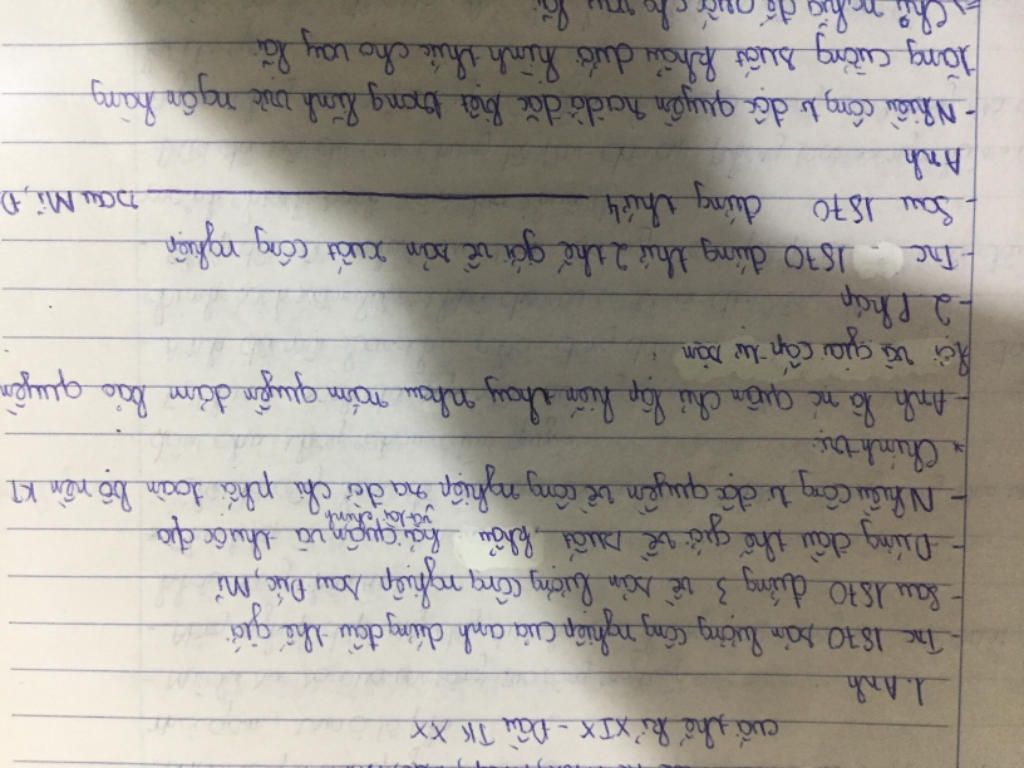 cuối thế kỉ XIX - Đầu TK XX
1. Anh
- Trc 1870 sản lượng công nghiệp của anh đứng đầu thế giới
- Sau 1870 đứng 3 về sản lượng công nghiệp sau Đức, Mĩ
- Đứng đầu thế giới về xuất khẩu và tài chính hải quân và thuộc địa
- Nhiều công ti độc quyền về công nghiệp ra đời chi phối toàn bộ nền KT
* Chính trị:
- Anh là nc quân chủ lập hiến thay nhau nắm quyền đảm bảo quyền
lợi và giai cấp tư sản
- 2. Pháp
- Trc 1870 đứng thứ 2 thế giới về sản xuất công nghiệp
- Sau 1870 đứng thứ 4 sau Mĩ, Đ
Anh
- Nhiều công ti độc quyền ra đời đặc biệt trong lĩnh vực ngân hàng
tăng cường xuất khẩu dưới hình thức cho vay lãi
=> Chủ nghĩa đế quốc cho vay lãi